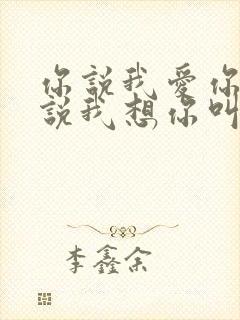 你説我愛你
説我想你叫
李鑫余